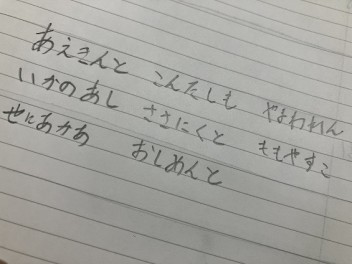 あえきんと こんたしも やよわれん
いかのあし ささにくと ももやすこ
せにあかあ おしめんと